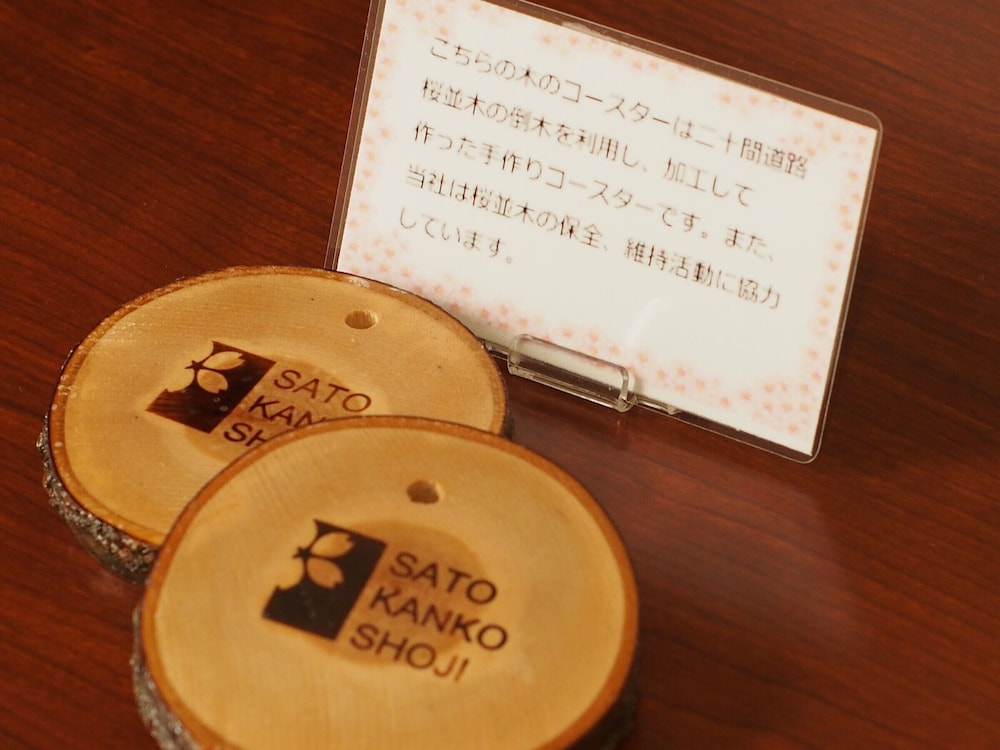 こちらの木のコースターは二十間道路
桜並木の倒木を利用し、加工して
作った手作りコースターです。また、
当社は桜並木の保全、維持活動に協力
しています。
SATO
KAN
SH
SATO
KANKO
SHOJI